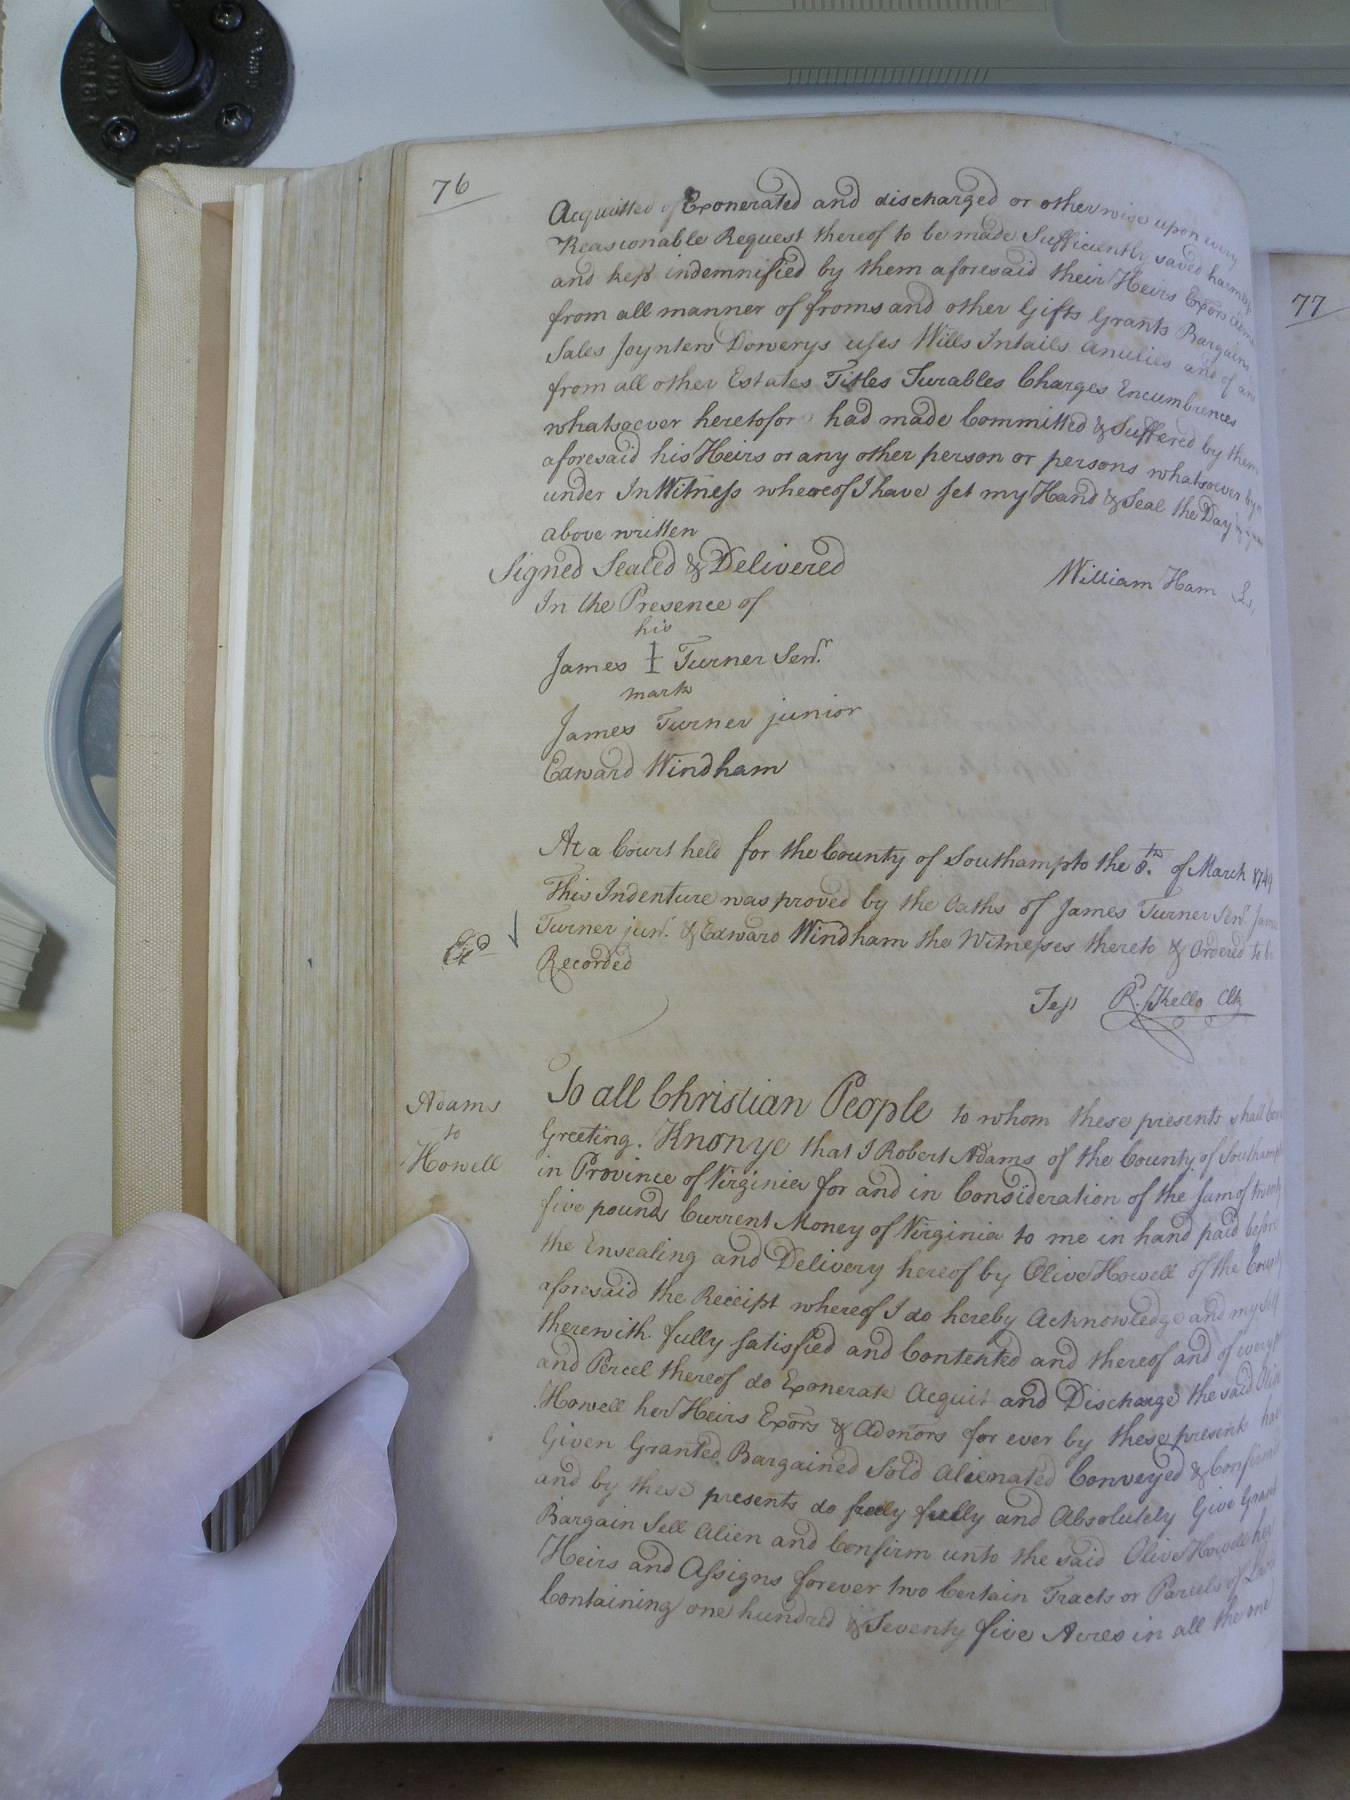 76
Acquitted Exonerated and discharged or otherwise upon every
Reasionable Request thereof to be made Sufficiently saved harmless
and kept indemnified by them aforesaid their Heirs Exors
from all manner of froms and other Gifts Grants Bargains
Sales Joynters Dowerys uses Wills Intails anuities and of an
from all other Estates Titles Turables Charges Encumbrences
whatsoever heretofor had made Committed & Suffered by them
aforesaid his Heirs or any other person or persons whatsoever by
under In Witness whereof I have set my Hand & Seal the Day
above written
Signed Sealed & Delivered
William Ham Ls,
In the Presence of
his
James I Turner Senr.
mark
James Turner junior
Edward Windham
At a Court held for the County of Southampto the 8th. of March 1749
This Indenture was proved by the Oaths of James Turner Senr. James
Turner junr. & Edward Windham the Witnesses thereto & Ordered to be
Recorded
Test R. Kello Clk
Adams
to
Howell
To all Christian People to whom these presents shall Come
Greeting. Knonye that I Robert Adams of the County of Southampt
in Province of Virginia for and in Consideration of the sum of twenty
five pounds Current Money of Virginia to me in hand paid before
the Ensealing and Delivery hereof by Olive Howell of the County
aforesaid the Receipt whereof I do hereby Acknowledge and my self
therewith fully satisfied and Contented and thereof and of every
and Percel thereof do Exonerate Acquit and Discharge the said Olive
Howell her Heirs Exors & Admors for ever by these presents have
Given Granted Bargained Sold Alienated Conveyed & Confirmed
and by these presents do freely fully and Absolutely Give Grant
Bargain Sell Alien and Confirm unto the said Olive Howell her
Heirs and Assigns forever two Certain Tracts or Parcels of Land
Containing one hundred & Seventy five Acres in all the one
77